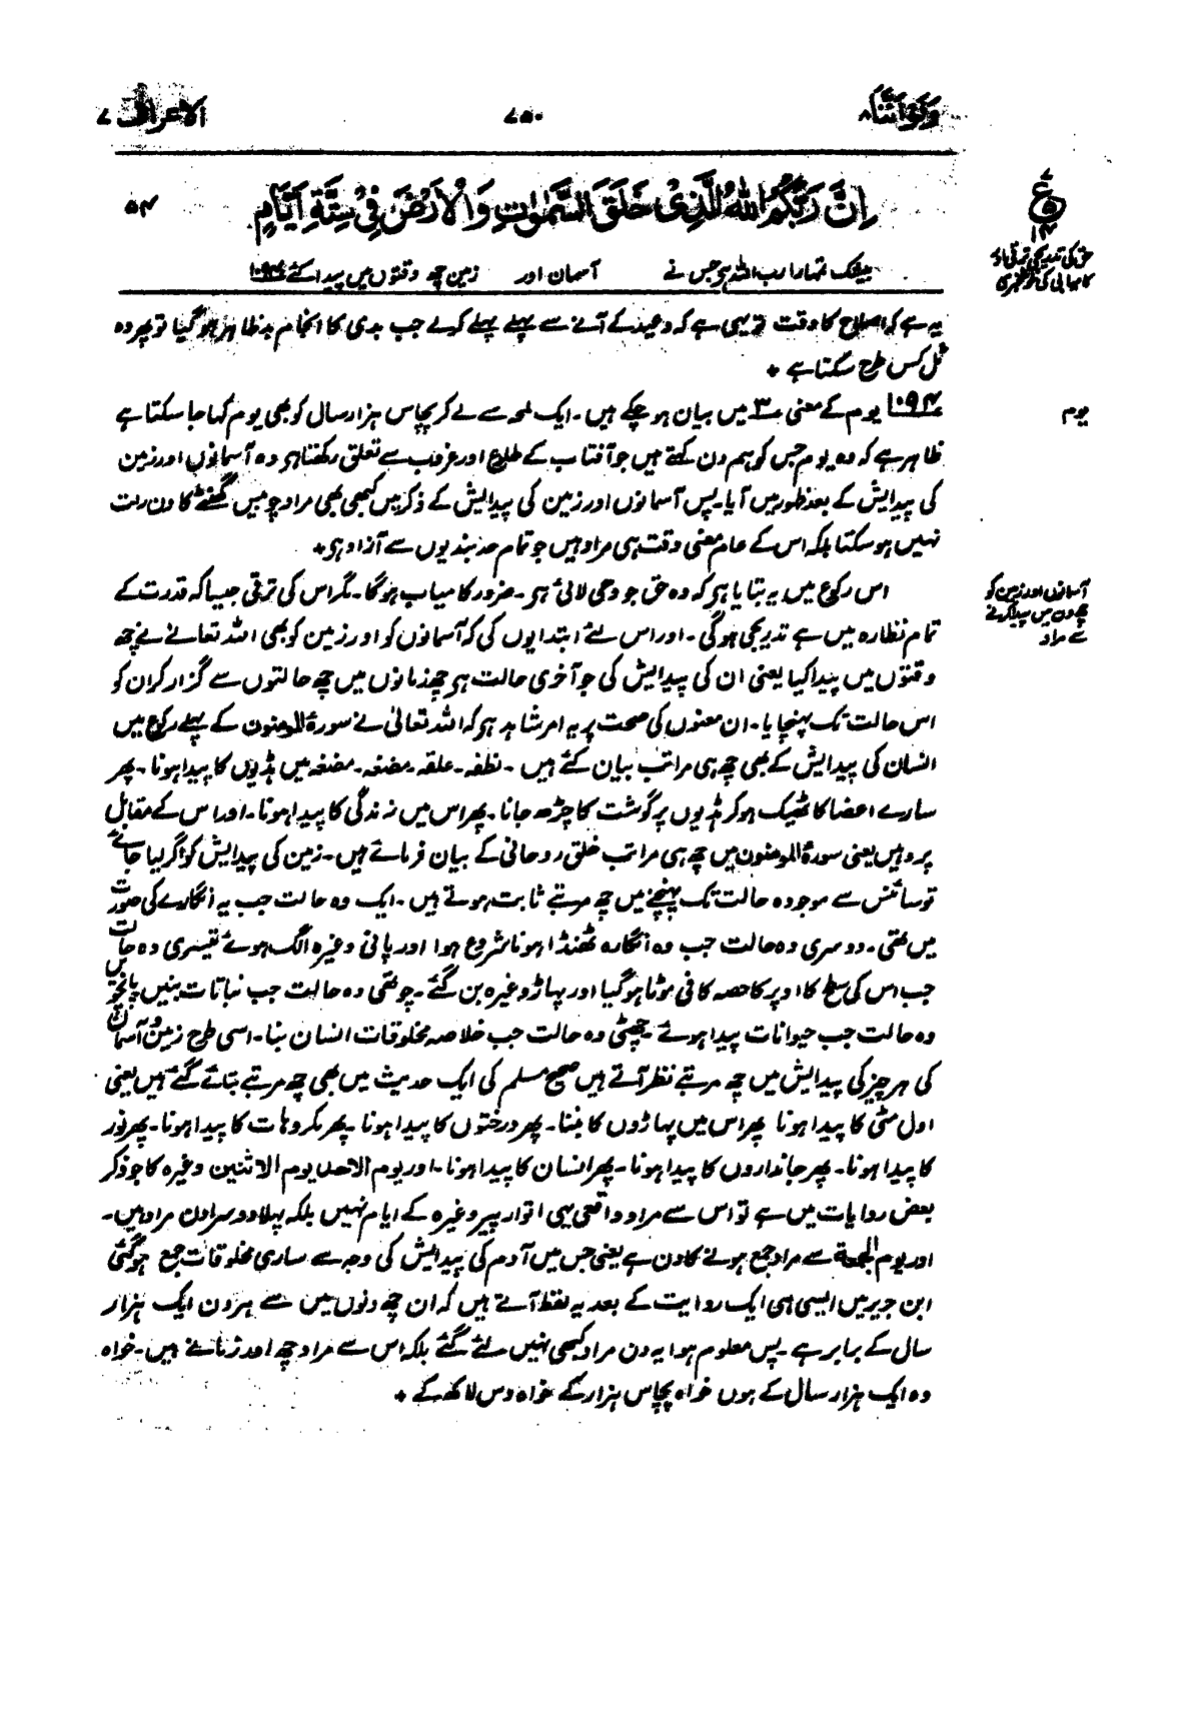 ولواننا ۸
۷۵۰
الاعراف ۷
اِنَّ رَبَّكُمُ اللّٰهُ الَّذِیْ خَلَقَ السَّمٰوٰتِ وَالْاَرْضَ فِیْ سِتَّةِ اَیَّامٍ
۵۴
ع
۱۴
حق کی تدریجی ترقی اور
کامیابی کی خوشخبری
بیشک تمہارا رب اللہ ہے جس نے آسمان اور زمین چھ وقتوں میں پیدا کئے ۱۰۹۴
یہ ہے کہ اصلاح کا وقت تو یہی ہے کہ وعید کے آنے سے پہلے پہلے کرلے جب بدی کا انجام بد ظاہر ہو گیا تو پھر وہ
ٹل کس طرح سکتا ہے ٭
یوم
۱۰۹۴ یوم کے معنی ۳ میں بیان ہو چکے ہیں۔ ایک لمحہ سے لے کر پچاس ہزار سال کو بھی یوم کہا جا سکتا ہے
ظاہر ہے کہ وہ یوم جس کو ہم دن کہتے ہیں جو آفتاب کے طلوع اور غروب سے تعلق رکھتا ہی وہ آسمانوں اور زمین
کی پیدایش کے بعد ظہور میں آیا۔ پس آسمانوں اور زمین کی پیدایش کے ذکر میں کبھی بھی مراد چوبیس گھنٹے کا دن رات
نہیں ہو سکتا بلکہ اس کے عام معنی وقت ہی مراد ہیں جو تمام حد بندیوں سے آزاد ہی٭
آسمانوں اور زمین کو
چھ دن میں پیدا کرنے
سے مراد
اس رکوع میں یہ بتایا ہی کہ وہ حق جو وحی لائی ہی۔ ضرور کامیاب ہوگا۔ مگر اس کی ترقی جیسا کہ قدرت کے
تمام نظارہ میں ہے تدریجی ہوگی۔ اور اس لئے ابتدا یوں کی کہ آسمانوں کو اور زمین کو بھی اللہ تعالےٰ نے چھ
وقتوں میں پیدا کیا یعنی ان کی پیدایش کی جو آخری حالت ہی چھ زمانوں میں چھ حالتوں سے گزار کر ان کو
اس حالت تک پہنچایا۔ ان معنوں کی صحت پر یہ امر شاہد ہی کہ اللہ تعالیٰ نے سورۃ المومنون کے پہلے رکوع میں
انسان کی پیدایش کے بھی چھ ہی مراتب بیان کئے ہیں۔ نطفہ۔ علقہ۔ مضغہ۔ مضغہ میں ہڈیوں کا پیدا ہونا۔ پھر
سارے اعضا کا ٹھیک ہو کر ہڈیوں پر گوشت کا چڑھ جانا۔ پھر اس میں زندگی کا پیدا ہونا۔ اور اس کے مقابل
پر وہیں یعنی سورۃ المومنون میں چھ ہی مراتب خلق روحانی کے بیان فرمائے ہیں۔ زمین کی پیدایش کو اگر لیا جائے
تو سائنس سے موجودہ حالت تک پہنچنے میں چھ مرتبے ثابت ہوتے ہیں۔ ایک وہ حالت جب یہ انگارے کی صورت
میں تھی۔ دوسری وہ حالت جب وہ انگارہ ٹھنڈا ہونا شروع ہوا اور پانی وغیرہ الگ ہوئے تیسری وہ حالت
جب اس کی سطح کا اوپر کا حصہ کافی موٹا ہو گیا اور پہاڑ وغیرہ بن گئے۔ چوتھی وہ حالت جب نباتات بنیں پانچویں
وہ حالت جب حیوانات پیدا ہوئے۔ چھٹی وہ حالت جب خلاصہ مخلوقات انسان بنا۔ اسی طرح زمین و آسمان
کی ہر چیز کی پیدایش میں چھ مرتبے نظر آتے ہیں صحیح مسلم کی ایک حدیث میں بھی چھ مرتبے بتائے گئے ہیں یعنی
اول مٹی کا پیدا ہونا پھر اس میں پہاڑوں کا بننا۔ پھر درختوں کا پیدا ہونا۔ پھر مکروہات کا پیدا ہونا۔ پھر نور
کا پیدا ہونا۔ پھر جانداروں کا پیدا ہونا۔ پھر انسان کا پیدا ہونا۔ اور یوم الاحد یوم الاثنین وغیرہ کا جو ذکر
بعض روایات میں ہے تو اس سے مراد واقعی یہی اتوار پیر وغیرہ کے ایام نہیں بلکہ پہلا دوسرا دن مراد ہیں۔
اور یوم الجمعۃ سے مراد جمع ہونے کا دن ہے یعنی جس میں آدم کی پیدایش کی وجہ سے ساری مخلوقات جمع ہو گئی
ابن جریر میں ایسی ہی ایک روایت کے بعد یہ لفظ آتے ہیں کہ ان چھ دنوں میں سے ہر دن ایک ہزار
سال کے برابر ہے۔ پس معلوم ہوا یہ دن مراد کبھی نہیں لئے گئے بلکہ اس سے مراد چھ اور زمانے ہیں۔ خواہ
وہ ایک ہزار سال کے ہوں خواہ پچاس ہزار کے خواہ دس لاکھ کے ٭